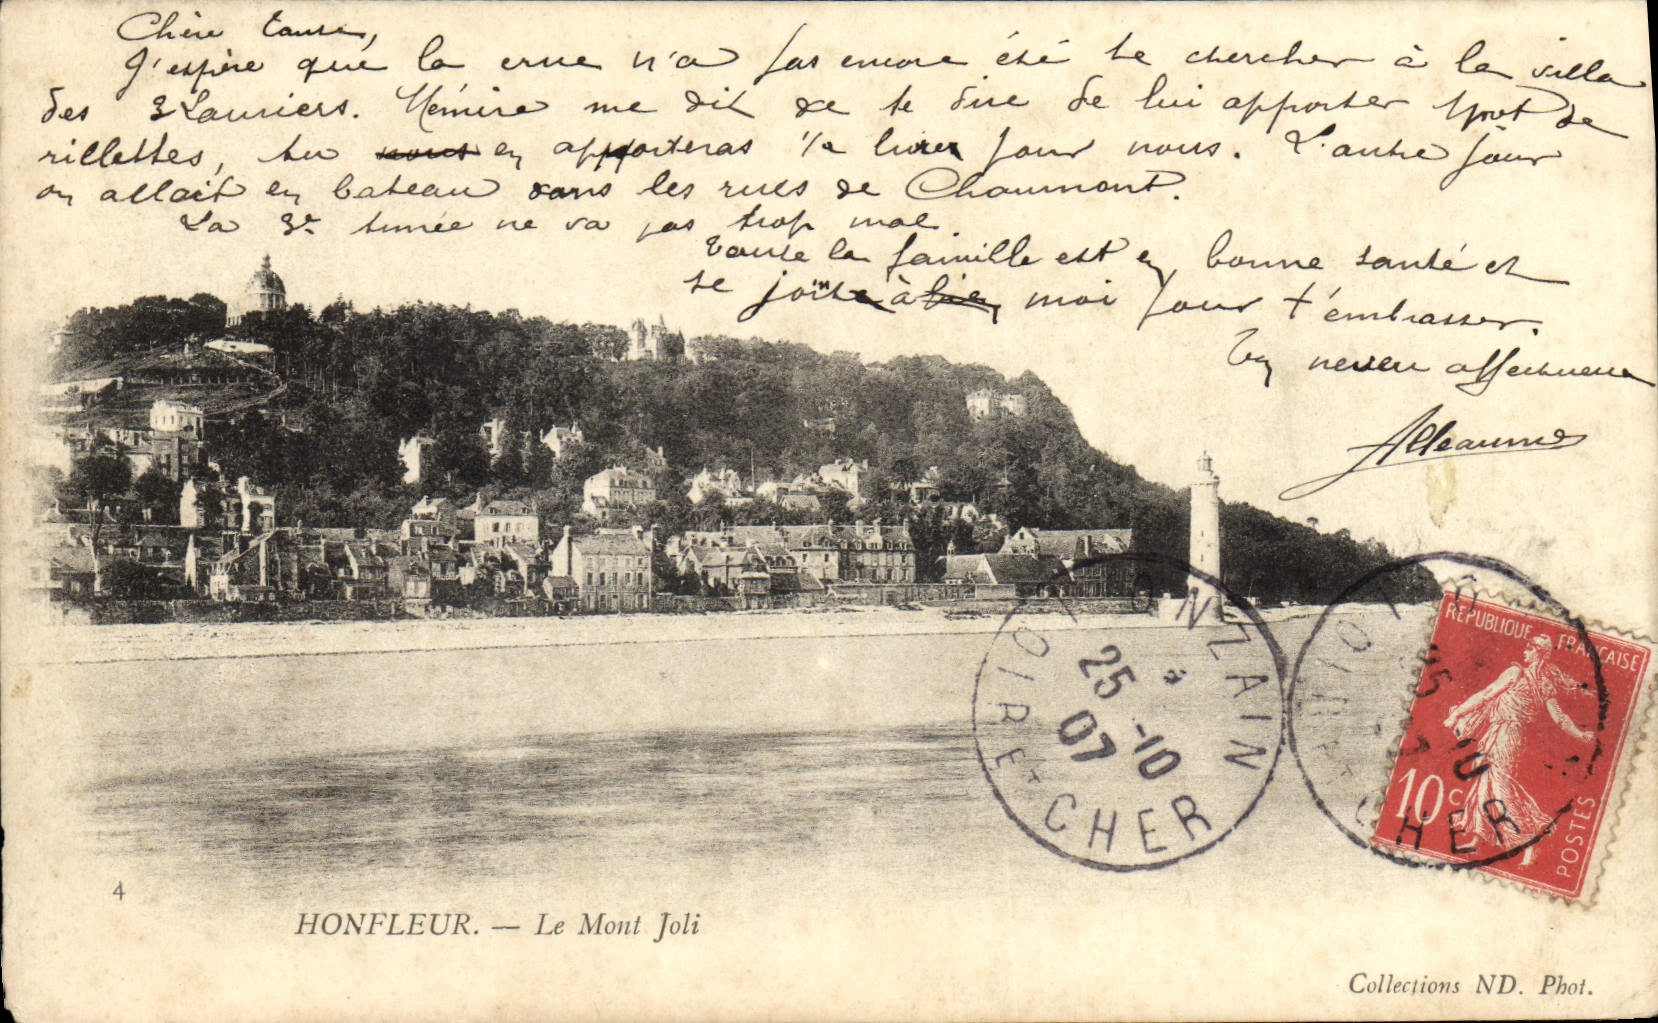 Chère tante,
J'espère que la crue n'a pas encore été te chercher à la villa
des 3 Lauriers. Mémère me dit de te dire de lui apporter 1 pot de
rillettes, tu nous en apporteras 1/2 livre pour nous. L'autre jour
on allait en bateau dans les rues de Chaumont.
La 3e année ne va pas trop mal.
Toute la famille est en bonne santé et
se joint à moi pour t'embrasser.
Ton neveu affectueux
REPUBLIQUE FRANÇAISE
10 c
POSTES
ONZAIN
25-10
07
LOIR-ET-CHER
ONZAIN
25-10
07
LOIR-ET-CHER
4
HONFLEUR. — Le Mont Joli
Collections ND. Phot.